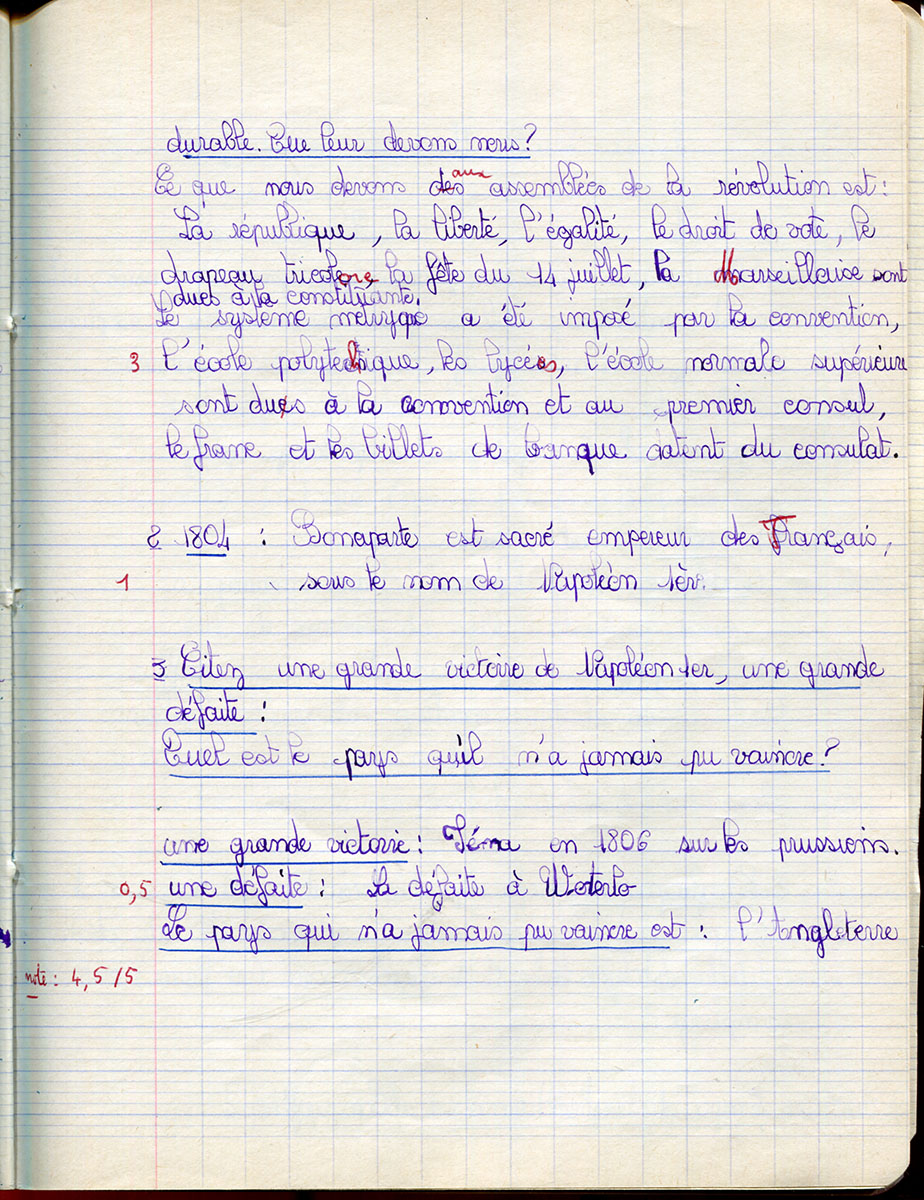 durable. Que leur devons nous ?
Ce que nous devons des aux assemblées de la révolution est :
La république, la liberté, l'égalité, le droit de vote, le
drapeau tricolore, la fête du 14 juillet, la Marseillaise sont
dues à la constituante.
Le système métryque a été imposé par la convention,
3 l'école polytechnique, les lycées, l'école normale supérieure
sont dues à la convention et au premier consul,
le franc et les billets de banque datent du consulat.
2 1804 : Bonaparte est sacré empereur des Français,
1 sous le nom de Napoléon 1er.
3 Citez une grande victoire de Napoléon 1er, une grande
défaite :
Quel est le pays qu'il n'a jamais pu vaincre ?
une grande victorie : Iéna en 1806 sur les prussiens.
0,5 une défaite : La défaite à Waterlo
Le pays qui n'a jamais pu vaincre est : l'Angleterre
note : 4,5/5